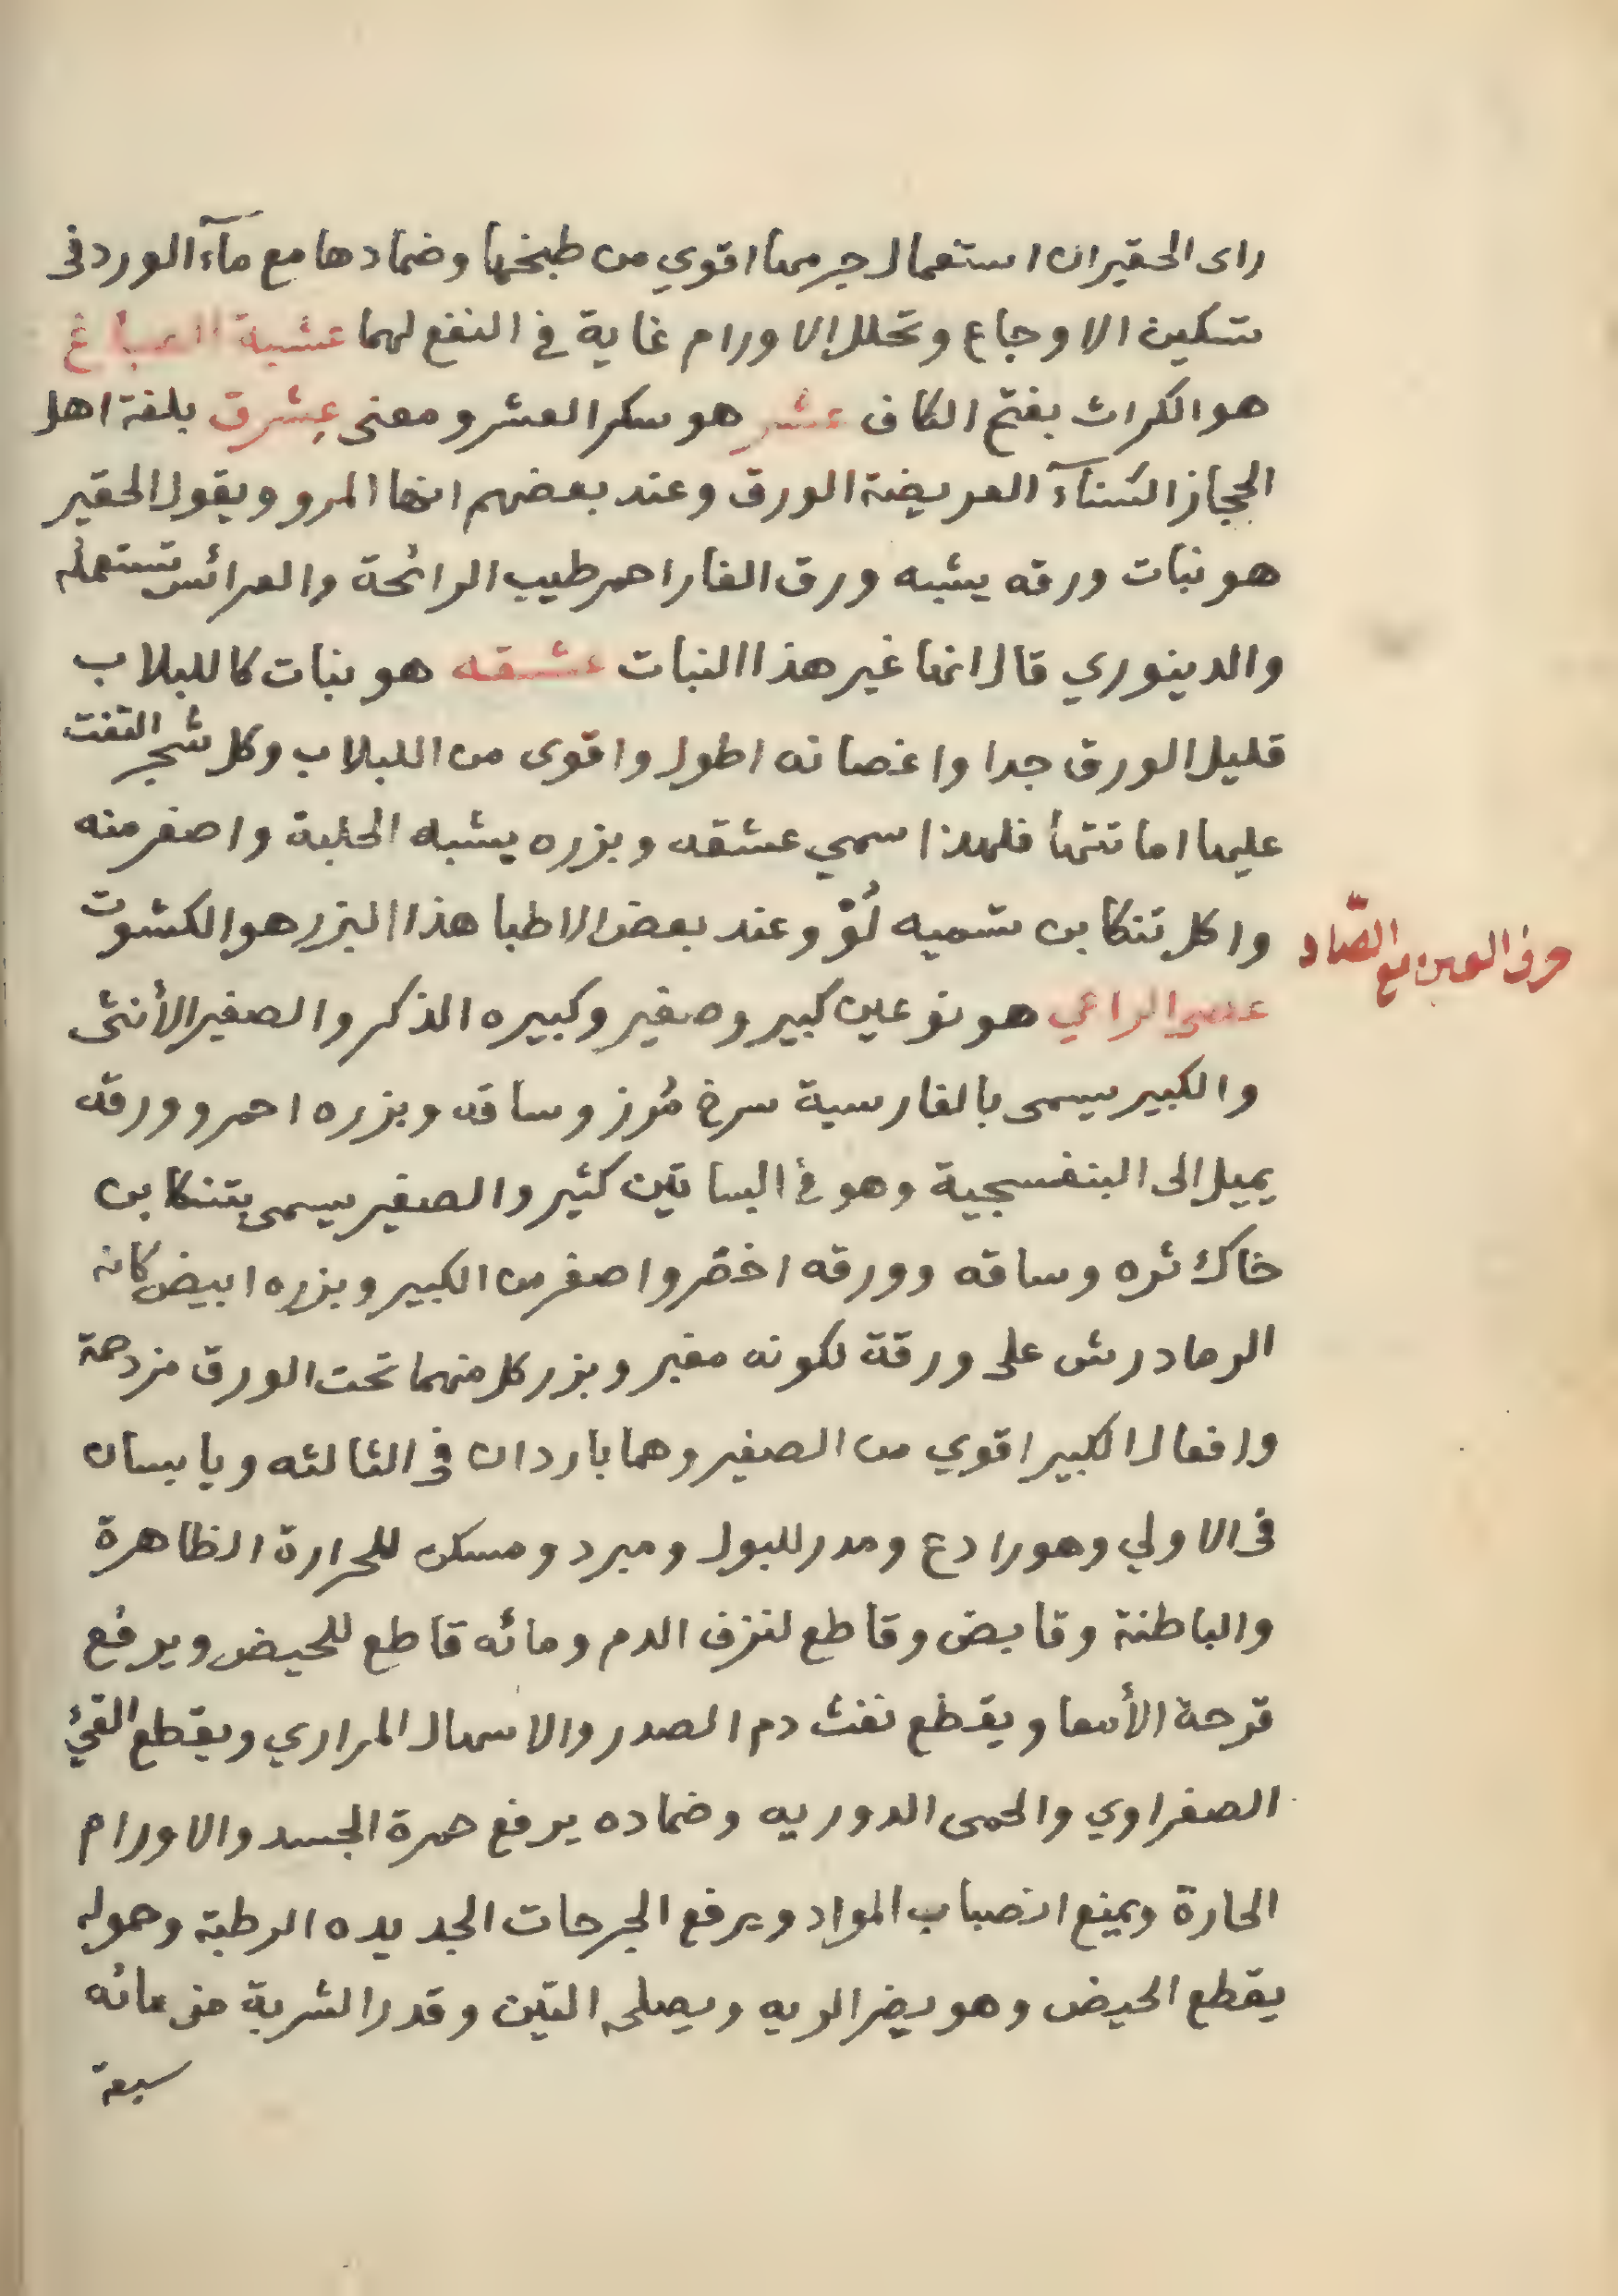 راى الحقير ان استعمال جرمها اقوي من طبخها وضمادها مع مآء الورد فى
تسكين الاوجاع وتحلل الاورام غاية في النفع لهما عشبة السباغ
هو الكراث بفتح الكاف عشر هو سكر العشر ومعنى عِشرق بلغة اهل
الحجاز السَنآء العريضة الورق وعند بعضهم انها المرو ويقول الحقير
هو نبات ورقه يشبه ورق الغار احمر طيب الرائحة والعرائس تستعمله
والدينوري قال انها غير هذا النبات عشقه هو نبات كاللبلاب
قليل الورق جدا واغصانه اطول واقوى من اللبلاب وكل شجر التفت
عليها اماتتها فلهذا سمي عشقه وبزره يشبه الحلبة واصغر منه
واكل تنكابن تسميه لَوْ وعند بعض الاطبا هذا البزر هو الكشوت
حرف العين مع الصّاد
عصى الراعي هو نوعين كبير وصغير وكبيره الذكر والصغير الأنثى
والكبير يسمى بالفارسية سرخ مُرز وساقه وبزره احمر وورقه
يميل الى البنفسجية وهو في البساتين كثير والصغير يسمى بتنكابن
خاك تره وساقه وورقه اخضر واصغر من الكبير وبزره ابيض كانه
الرماد رش على ورقة لكونه مغبر وبزر كل منهما تحت الورق مزدحمة
وافعال الكبير اقوي من الصغير وهما باردان في الثالثه ويابسان
فى الاولي وهو رادع ومدر للبول ومبرد ومسكن للحرارة الظاهرة
والباطنة وقابض وقاطع لنزف الدم ومائه قاطع للحيض ويرفع
قرحة الأمعا ويقطع نفث دم الصدر والاسهال المراري ويقطع القيء
الصفراوي والحمى الدوريه وضماده يرفع حمرة الجسد والاورام
الحارة ويمنع انصباب المواد ويرفع الجرحات الجديده الرطبة وحموله
يقطع الحيض وهو يضر الريه ويصلحه التين وقدر الشربة من مائه
سبعة